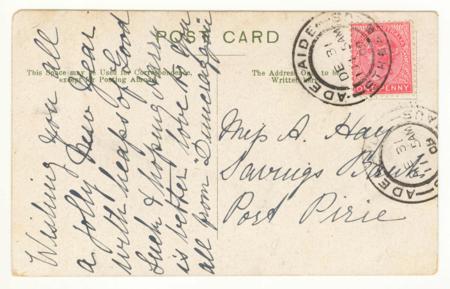 POST CARD
This Space may be Used for Correspondence,
except for Posting Abroad.
The Address Only to be
Written Here.
Wishing you all
a jolly New Year
with heaps of Good
Luck & hoping Harry
is better love to you
all from Duncraffin
Miss A. Hay
Savings Bank
Port Pirie
ADELAIDE
5 AM
DE 31
ONE PENNY
ADE
5 AM
31
08
AUS